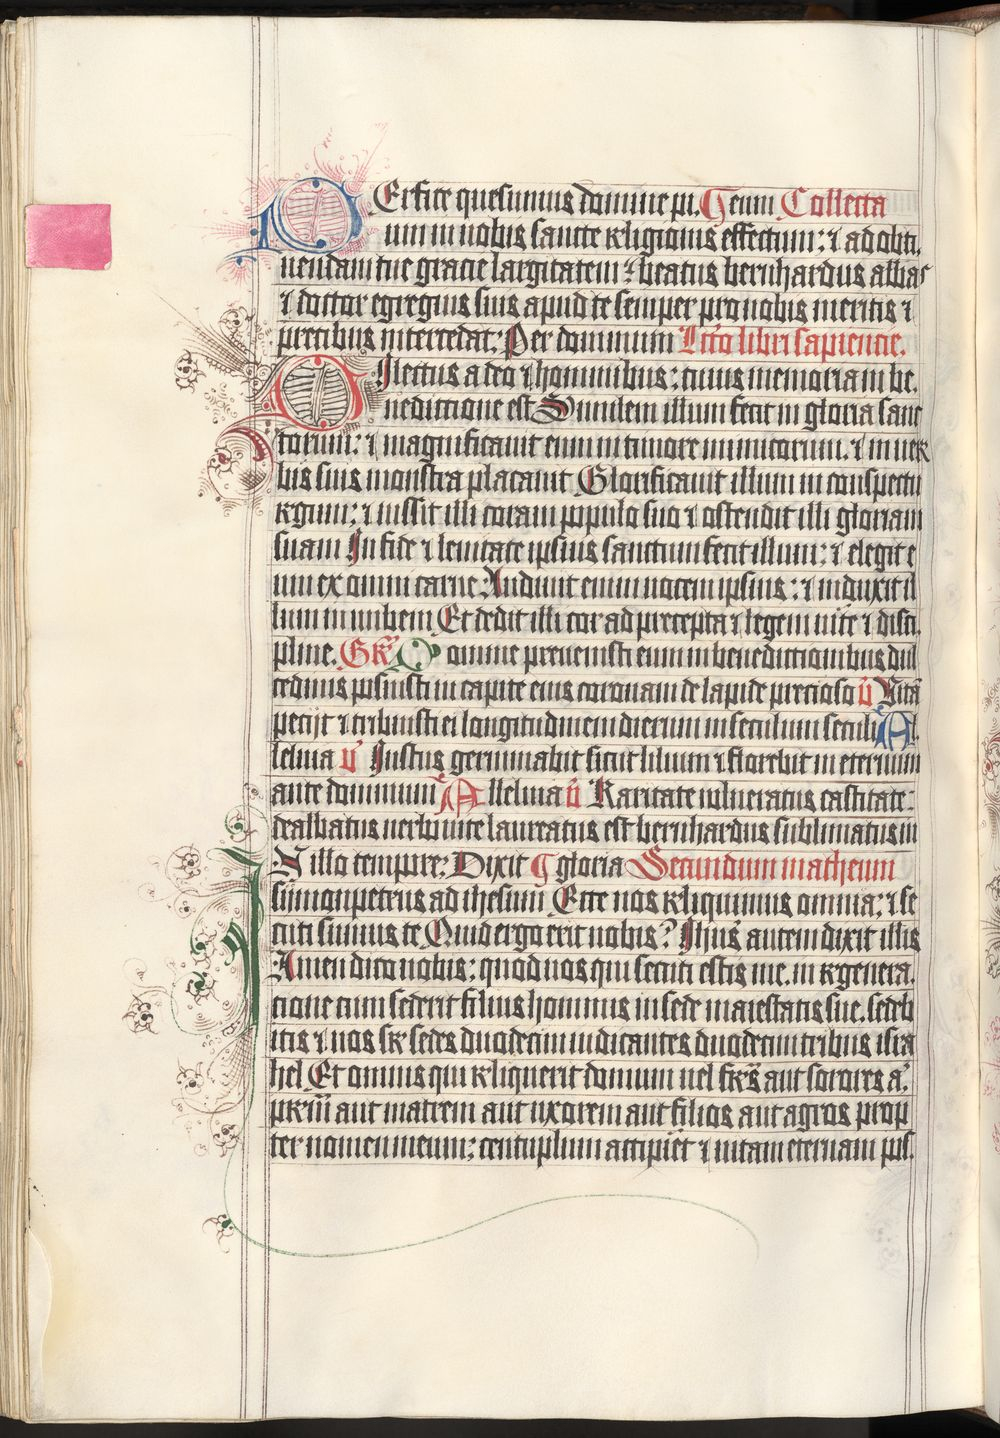 PErfice quesumus domine pi. Ceum Collecta
um in nobis sancte religionis effectum: ⁊ ad obti,
nendam tue gracie largitatem : beatus bernhardus abbas
⁊ doctor egregius suis apud te semper pro nobis meritis ⁊
precibus intercedat: Per dominum Lcĩo libri sapiencie.
DIlectus a deo ⁊ hominibus: cuius memoria in be.
nedictione est Similem illum fecit in gloria sanc
torum: ⁊ magnificauit eum in timore inimicorum. ⁊ in uer
bis suis monstra placauit Glorificauit illum in conspectu
regum: ⁊ iussit illi coram populo suo ⁊ ostendit illi gloriam
suam In fide ⁊ lenitate ipsius sanctum fecit illum: ⁊ elegit e
um ex omni carne Audiuit enim uocem ipsius: ⁊ induxit il
lum in nubem Et dedit illi cor ad precepta ⁊ legem uite ⁊ disci.
pline. Gř Domine preuenisti eum in benedictionibus dul
cedinis posuisti in capite eius coronam de lapide precioso v̉ Vitã
pecijt ⁊ tribuisti ei longitudinem dierum in seculum seculi Al
leluia v̉ Iustus germinabit sicut lilium ⁊ florebit in eternum
ante dominum Alleluia v̉ Karitate uulneratus castitate:
dealbatus uerbo uite laureatus est bernhardus sublimatus in
IN illo tempore: Dixit ¶ gloria Secundum matheum
symon petrus ad ihesum Ecce nos reliquimus omnia: ⁊ se
cuti sumus te Quid ergo erit nobis? Ihus̃ autem dixit illis
Amen dico nobis: quod uos qui secuti estis me. in regenera.
cione cum sederit filius hominis in sede maiestatis sue. sedeb
itis ⁊ uos sr̃ sedes duodecim iudicantes duodecim tribus isra
hel Et omnis qui reliquerit domum uel frẽs aut sorores a'
pr̃em aut matrem aut uxorem aut filios aut agros prop
ter nomen meum: centuplum accipiet ⁊ uitam eternam pos.